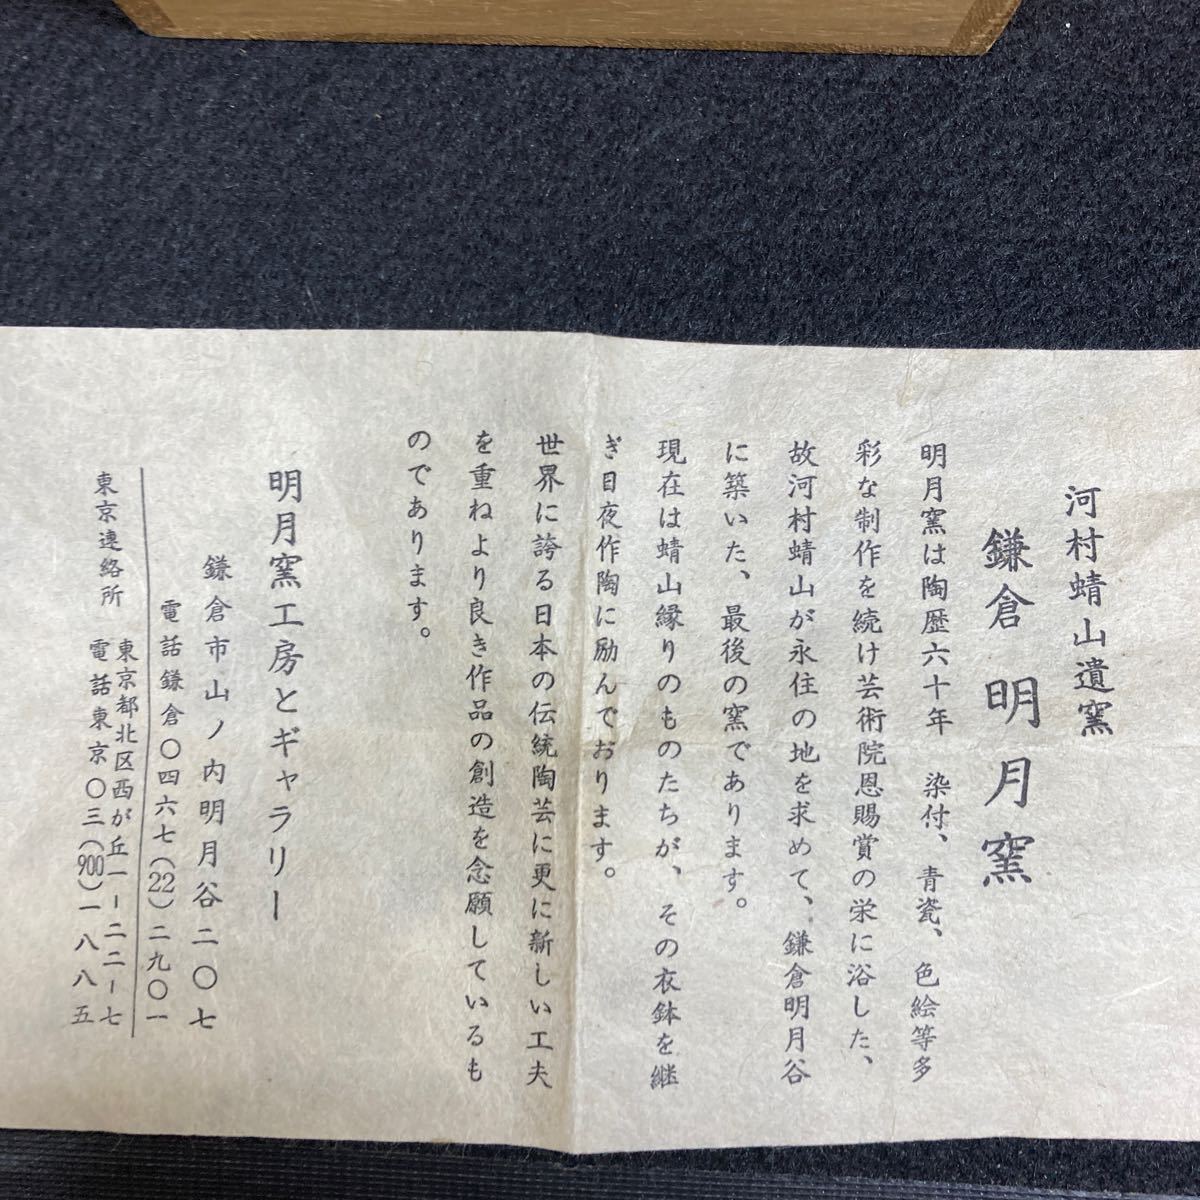 河村蜻山遺窯
鎌倉 明月窯
明月窯は陶歴六十年 染付、青瓷、色絵等多
彩な制作を続け芸術院恩賜賞の栄に浴した、
故河村蜻山が永住の地を求めて、鎌倉明月谷
に築いた、最後の窯であります。
現在は蜻山縁りのものたちが、その衣鉢を継
ぎ日夜作陶に励んでおります。
世界に誇る日本の伝統陶芸に更に新しい工夫
を重ねより良き作品の創造を念願しているも
のであります。
明月窯工房とギャラリー
鎌倉市山ノ内明月谷二〇七
電話鎌倉〇四六七(22)二九〇一
東京連絡所
東京都北区西が丘一-二二-七
電話東京〇三(900)一八八五